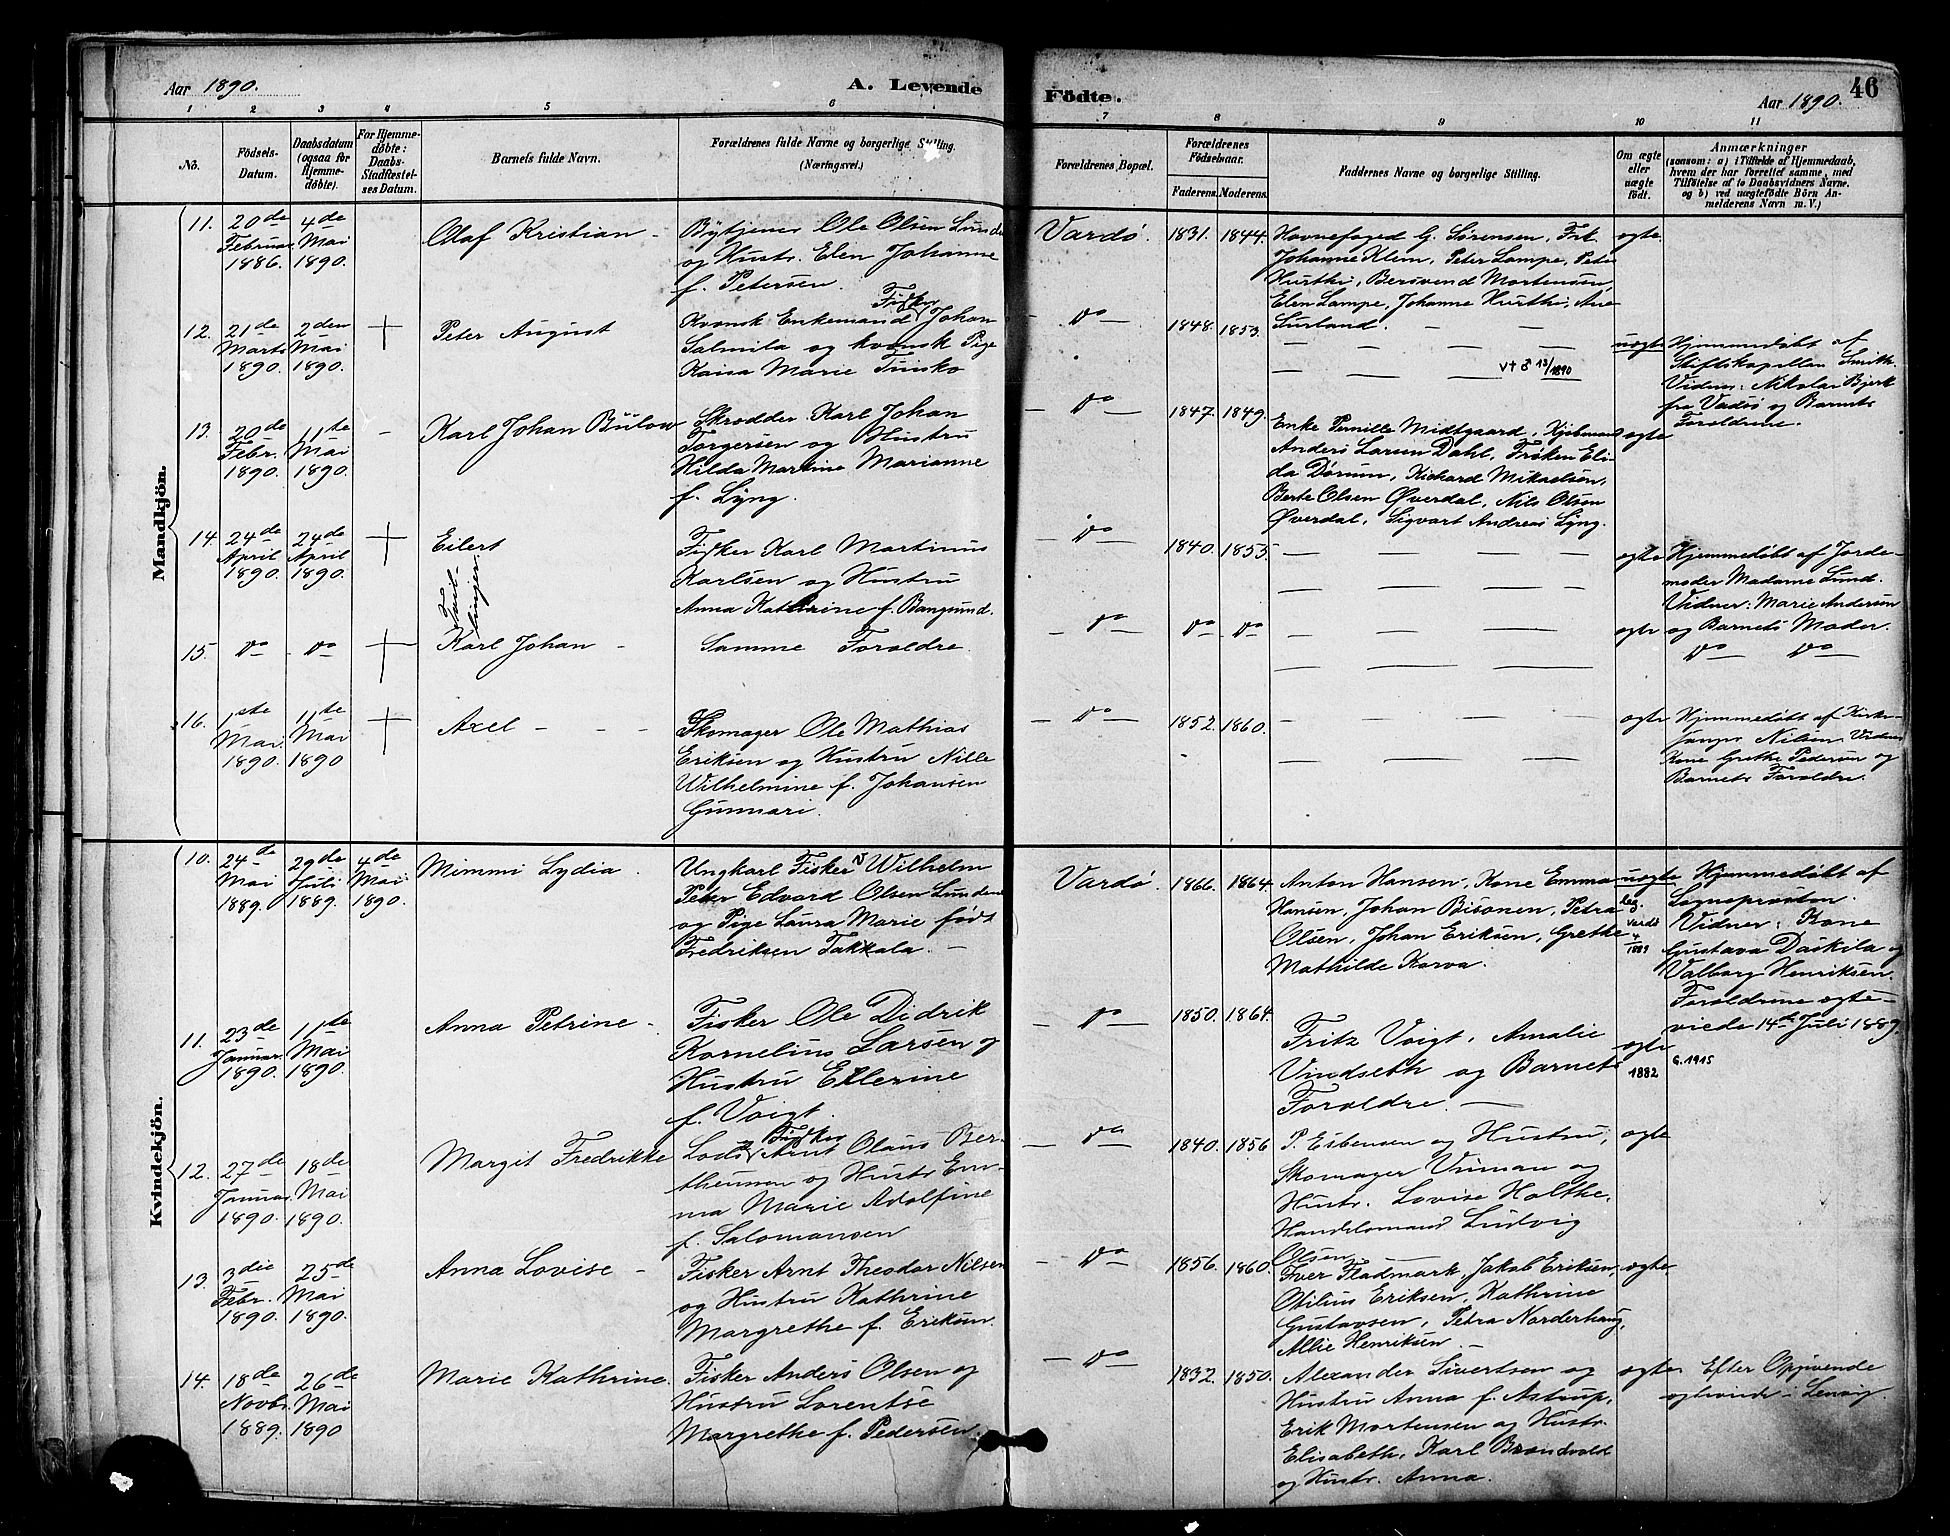 Aar 1890.
A. Levende
Födte.
Aar 1890.
46
1 2 3 4 5 6 7 8 9 10 11
No.
Fødsels-
Datum.
Daabsdatum
(ogsaa for
Hjemme-
døbte).
For Hjemme-
døbte:
Daabs-
Stadfæstel-
ses Datum.
Barnets fulde Navn.
Forældrenes fulde Navne og borgerlige Stilling.
(Næringsvei.)
Forældrenes Bopæl.
Forældrenes
Fødselsaar.
Faderens. Moderens.
Faddernes Navne og borgerlige Stilling.
Om ægte
eller
uægte
født.
Anmærkninger
(saasom: a) i Tilfælde af Hjemmedaab,
hvem der har forrettet samme, med
Tilføielse af to Daabsvidners Navne.
og b) ved uægtefødte Børn An-
melderens Navn m. V.)
Mandkjön.
11.
20de
Februar
1886.
4de
Mai
1890.
Olaf Kristian
Bytjener Ole Olsen Lunde
og Hustr. Elen Johanne
f. Petersen.
Vardø.
1831. 1844.
Havnefoged G. Sørensen, Frk.
Johanne Klem, Peter Lampe, Peter
Hurthi, Bersvend Mortensen,
Elen Lampe, Johanne Hurthi,
ægte
12.
21de
Marts
1890.
2den
Mai
1890.
Peter August
Fisker
Kvænsk Enkemand Johan
Salmila og kvænsk Pige
Kaisa Marie
Do
1848. 1853.
v† ♂ 13/1890
uægte
Hjemmedøbt af
Stiftskapellan Smith.
Vidner: Nikolai Bjerk
fra Vadsø og Barnets
Forældrene.
13.
20de
Febr.
1890.
11te
Mai
1890.
Karl Johan Bülow
Skrædder Karl Johan
Torgersen og Hustru
Hilda Martine Marianne
f. Lyng.
Do
1847. 1849.
Enke Pernille Midtgaard, Kjøbmand
Anders Larsen Dahl, Frøken Eli-
da Dørum, Richard Mikaelsen,
Berte Olsen Øverdal, Nils Olsen
Øverdal, Sigvart Andreas Lyng.
ægte
14.
24de
April
1890.
24de
April
1890.
Eilert
Tvil-
linger
Fisker Karl Martinus
Karlsen og Hustru
Anna Kathrine f. Bangsund.
Do
1840. 1855.
ægte
Hjemmedøbt af Jorde-
moder Madame Lund.
Vidner: Marie Andersen
og Barnets Moder.
15.
Do
Do
Karl Johan
Samme Forældre.
Do
Do Do
ægte
Do Do
16.
1ste
Mai
1890.
11te
Mai
1890
Axel
Skomager Ole Mathias
Eriksen og Hustru Nille
Wilhelmine f. Johansen
Gunnari.
Do
1852. 1860.
ægte
Hjemmedøbt af Kirke-
sanger Nilsen. Vidner
Kone Grethe Pedersen og
Barnets Forældre.
Kvindekjön.
10.
24de
Mai
1889.
29de
Juli
1889.
4de
Mai
1890.
Mimmi Lydia.
Ungkarl Fisker Wilhelm
Peter Edvard Olsen Lunden
og Pige Laura Marie født
Fredriksen Takkala.
Vardø.
1866. 1864.
Anton Hansen, Kone Emma
Hansen, Johan Bisonen, Petra
Olsen, Johan Eriksen, Grethe
Mathilde Korva.
uægte
leg.
Vardø
1889
Hjemmedøbt af
Sogneprosten.
Vidner: Kone
Gustava Daskila og
Valborg Henriksen.
Forældrene ægte-
viede 14de Juli 1889.
11.
23de
Januar
1890.
11te
Mai
1890.
Anna Petrine
Fisker Ole Didrik
Kornelius Larsen og
Hustru Ellerine
f. Voigt.
Do
1850. 1864.
Fritz Voigt, Amalie
Vindseth og Barnets
Forældre.
ægte
1882
G. 1915
12.
27de
Januar
1890.
18de
Mai
1890.
Margit Fredrikke
Fisker
Lods Arnt Olaus Ber-
theussen og Hustr. Em-
ma Marie Adolfine
f. Salomonsen
Do
1840. 1856
P. Esbensen og Hustru,
Skomager Viiman og
Hustr. Lovise Holthe,
Handelsmand Ludvig
Olsen
ægte
13.
3die
Febr.
1890.
25de
Mai
1890.
Anna Lovise
Fisker Arnt Theodor Nilsen
og Hustru Kathrine
Margrethe f. Eriksen.
Do
1856. 1860.
Iver Fladmark, Jakob Eriksen,
Otilius Eriksen, Kathrine
Gustavsen, Petra Norderhaug,
Allie Henriksen
ægte
14.
18de
Novbr.
1889.
26de
Mai
1890
Marie Kathrine.
Fisker Anders Olsen og
Hustru Lorentse
Margrethe f. Pedersen.
Do
1832. 1850.
Alexander Sivertsen og
Hustru Anna f. Astrup,
Erik Mortensen og Hustr.
Elisabeth, Karl Brændvold
og Hustr. Anna.
ægte
Efter Opgivende
ægteviede i Lenvig